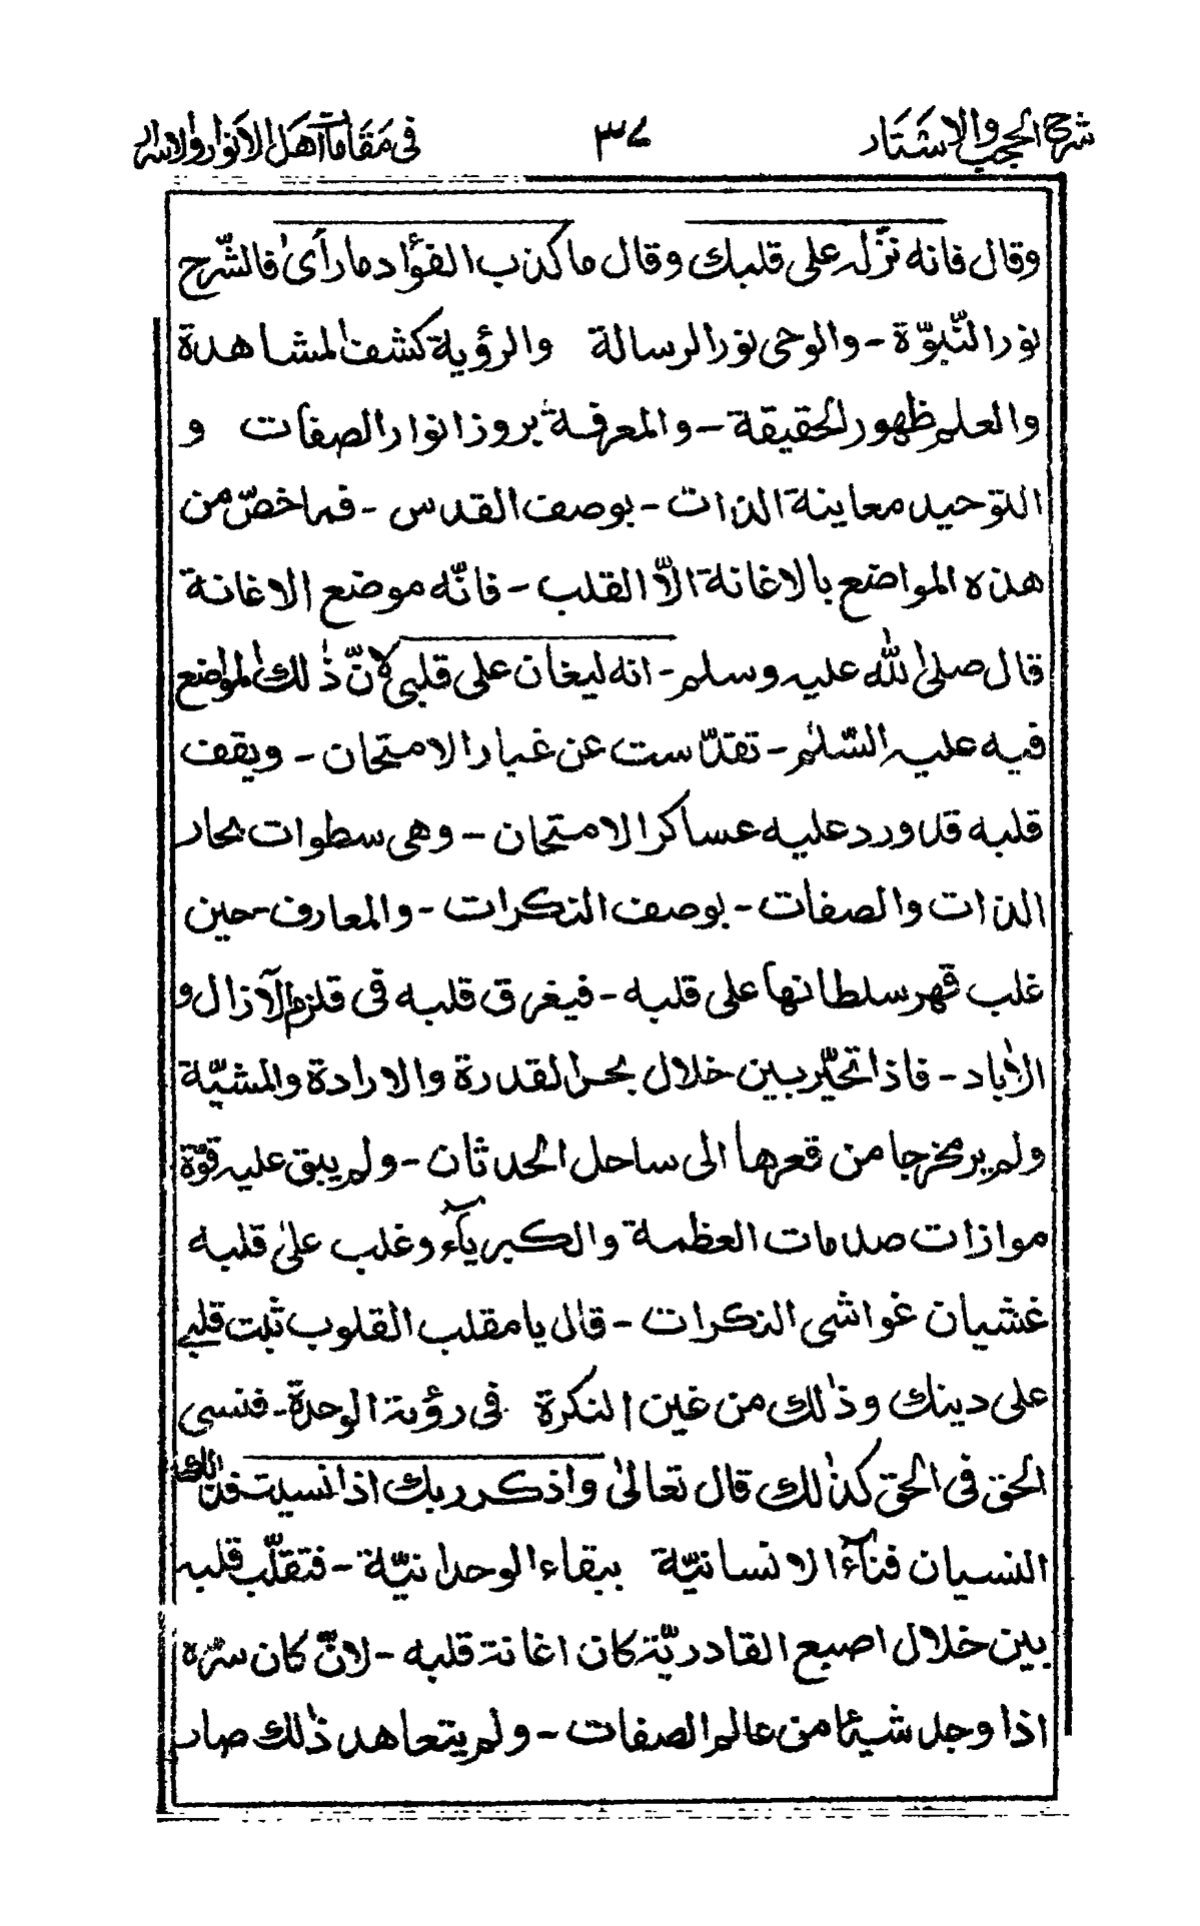 شرح الحجب والاستار
٣٧
فی مقامات اهل الانوار والاسرار
وقال فانه نزّله على قلبك وقال ما كذب الفؤاد ما رأى فالشّرح
نور النّبوّة - والوحی نور الرسالة والرؤية كشف المشاهدة
والعلم ظهور الحقيقة - والمعرفة بروز انوار الصفات و
التوحيد معاينة الذات - بوصف القدس - فما خصّ من
هذه المواضع بالاغانة الّا القلب - فانّه موضع الاغانة
قال صلى الله عليه وسلم - انه ليغان على قلبی لانّ ذٰلك المواضع
فيه عليه السّلٰم - تقدّست عن غبار الامتحان - ويقف
قلبه قد ورد عليه عساكر الامتحان - وهی سطوات بحار
الذات والصفات - بوصف النكرات - والمعارف - حين
غلب قهر سلطانها على قلبه - فيغرق قلبه فی قلزم الآزال و
الاٰباد - فاذا تحيّر بين خلال بحر القدرة والارادة والمشيّة
ولم ير مخرجا من قعرها الى ساحل الحدثان - ولم يبق عليه قوّة
موازات صدمات العظمة والكبريآء وغلب على قلبه
غشيان غواشی النكرات - قال يا مقلب القلوب ثبت قلبی
على دينك وذٰلك من غين النكرة فی رؤية الوحدة - فنسی
الحق فی الحق كذٰلك قال تعالىٰ واذكر ربك اذا نسيت فذالك
النسيان فنآء الانسانيّة ببقاء الوحدانيّة - فتقلّب قلبه
بين خلال اصبع القادريّة كان اغانة قلبه - لانّ كان سرّه
اذا وجد شيئا من عالم الصفات - ولم يتعاهد ذٰلك صار